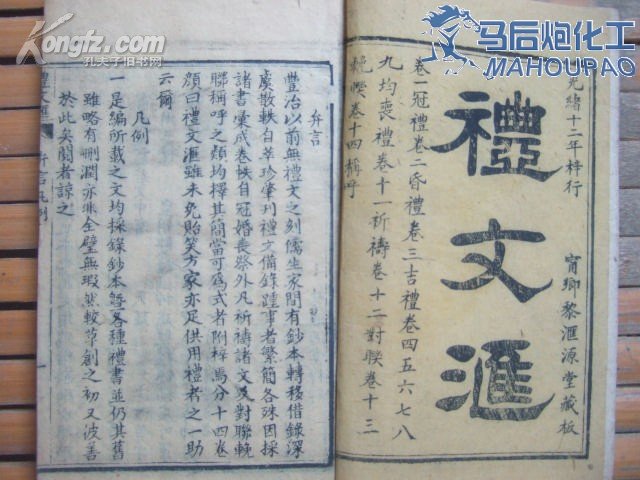 光緒十二年梓行
甯鄉黎滙源堂藏板
禮文滙
卷一冠禮卷二昏禮卷三吉禮卷四五六七八
九均喪禮卷十一祈禱卷十二對联卷十三
輓帳卷十四稱呼
弁言
豐治以前無禮文之刻儒生家間有鈔本轉移借錄深
虞散軼自萃珍肇刊禮文備錄踵事者繁簡各殊因採
諸書彙成卷帙自冠婚喪祭外凡祈禱諸文及對聯輓
聯稱呼之類均擇其簡當可為式者附梓焉分十四卷
顔曰禮文滙雖未免貽笑方家亦足供用禮者之一助
云爾
凡例
一是編所載之文均採錄鈔本暨各種禮書並仍其舊
雖略有刪潤亦非全璧無瑕然較草創之初又波善
於此矣閱者諒之
禮文滙
弁言凡例
一
Kongfz.com
孔夫子旧书网
马后炮化工
MAHOUPAO